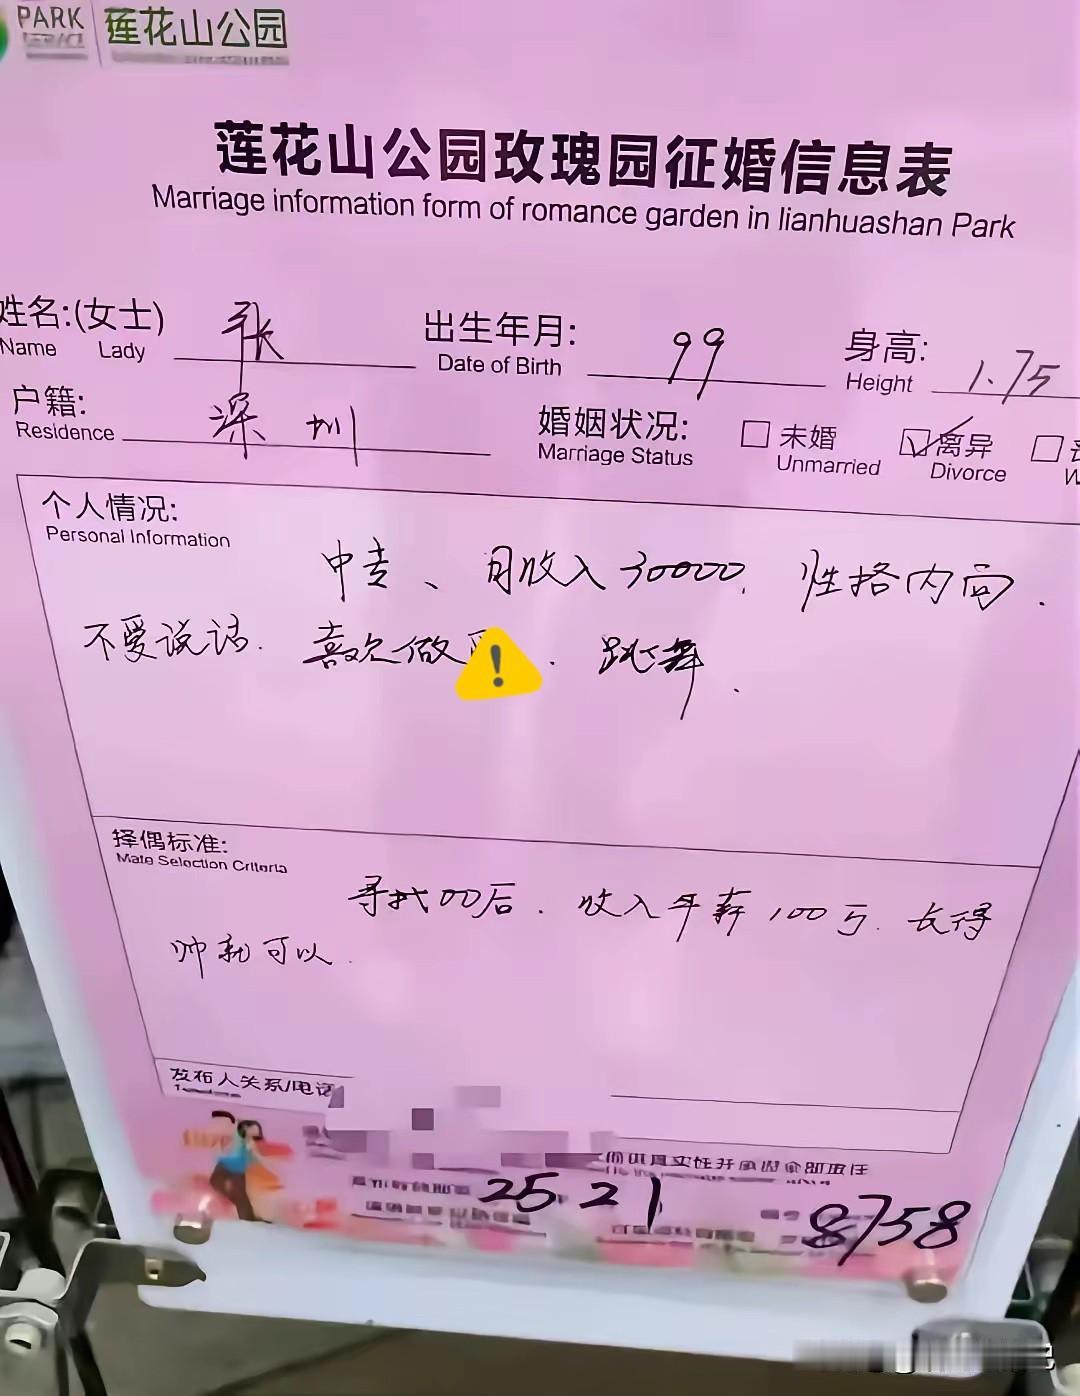 PARK 莲花山公园
SERVICE
莲花山公园玫瑰园征婚信息表
Marriage information form of romance garden in lianhuashan Park
姓名:(女士) 张 出生年月: 99 身高: 1.75
Name Lady Date of Birth Height
户籍: 深圳 婚姻状况: 未婚 离异
Residence Marriage Status Unmarried Divorce
个人情况:
Personal Information
中专、月收入30000. 性格内向.
不爱说话. 喜欢做 . 跳舞.
择偶标准:
Mate Selection Criteria
寻找00后. 收入年薪100万. 长得
帅就可以.
发布人关系/电话
25 21 8758